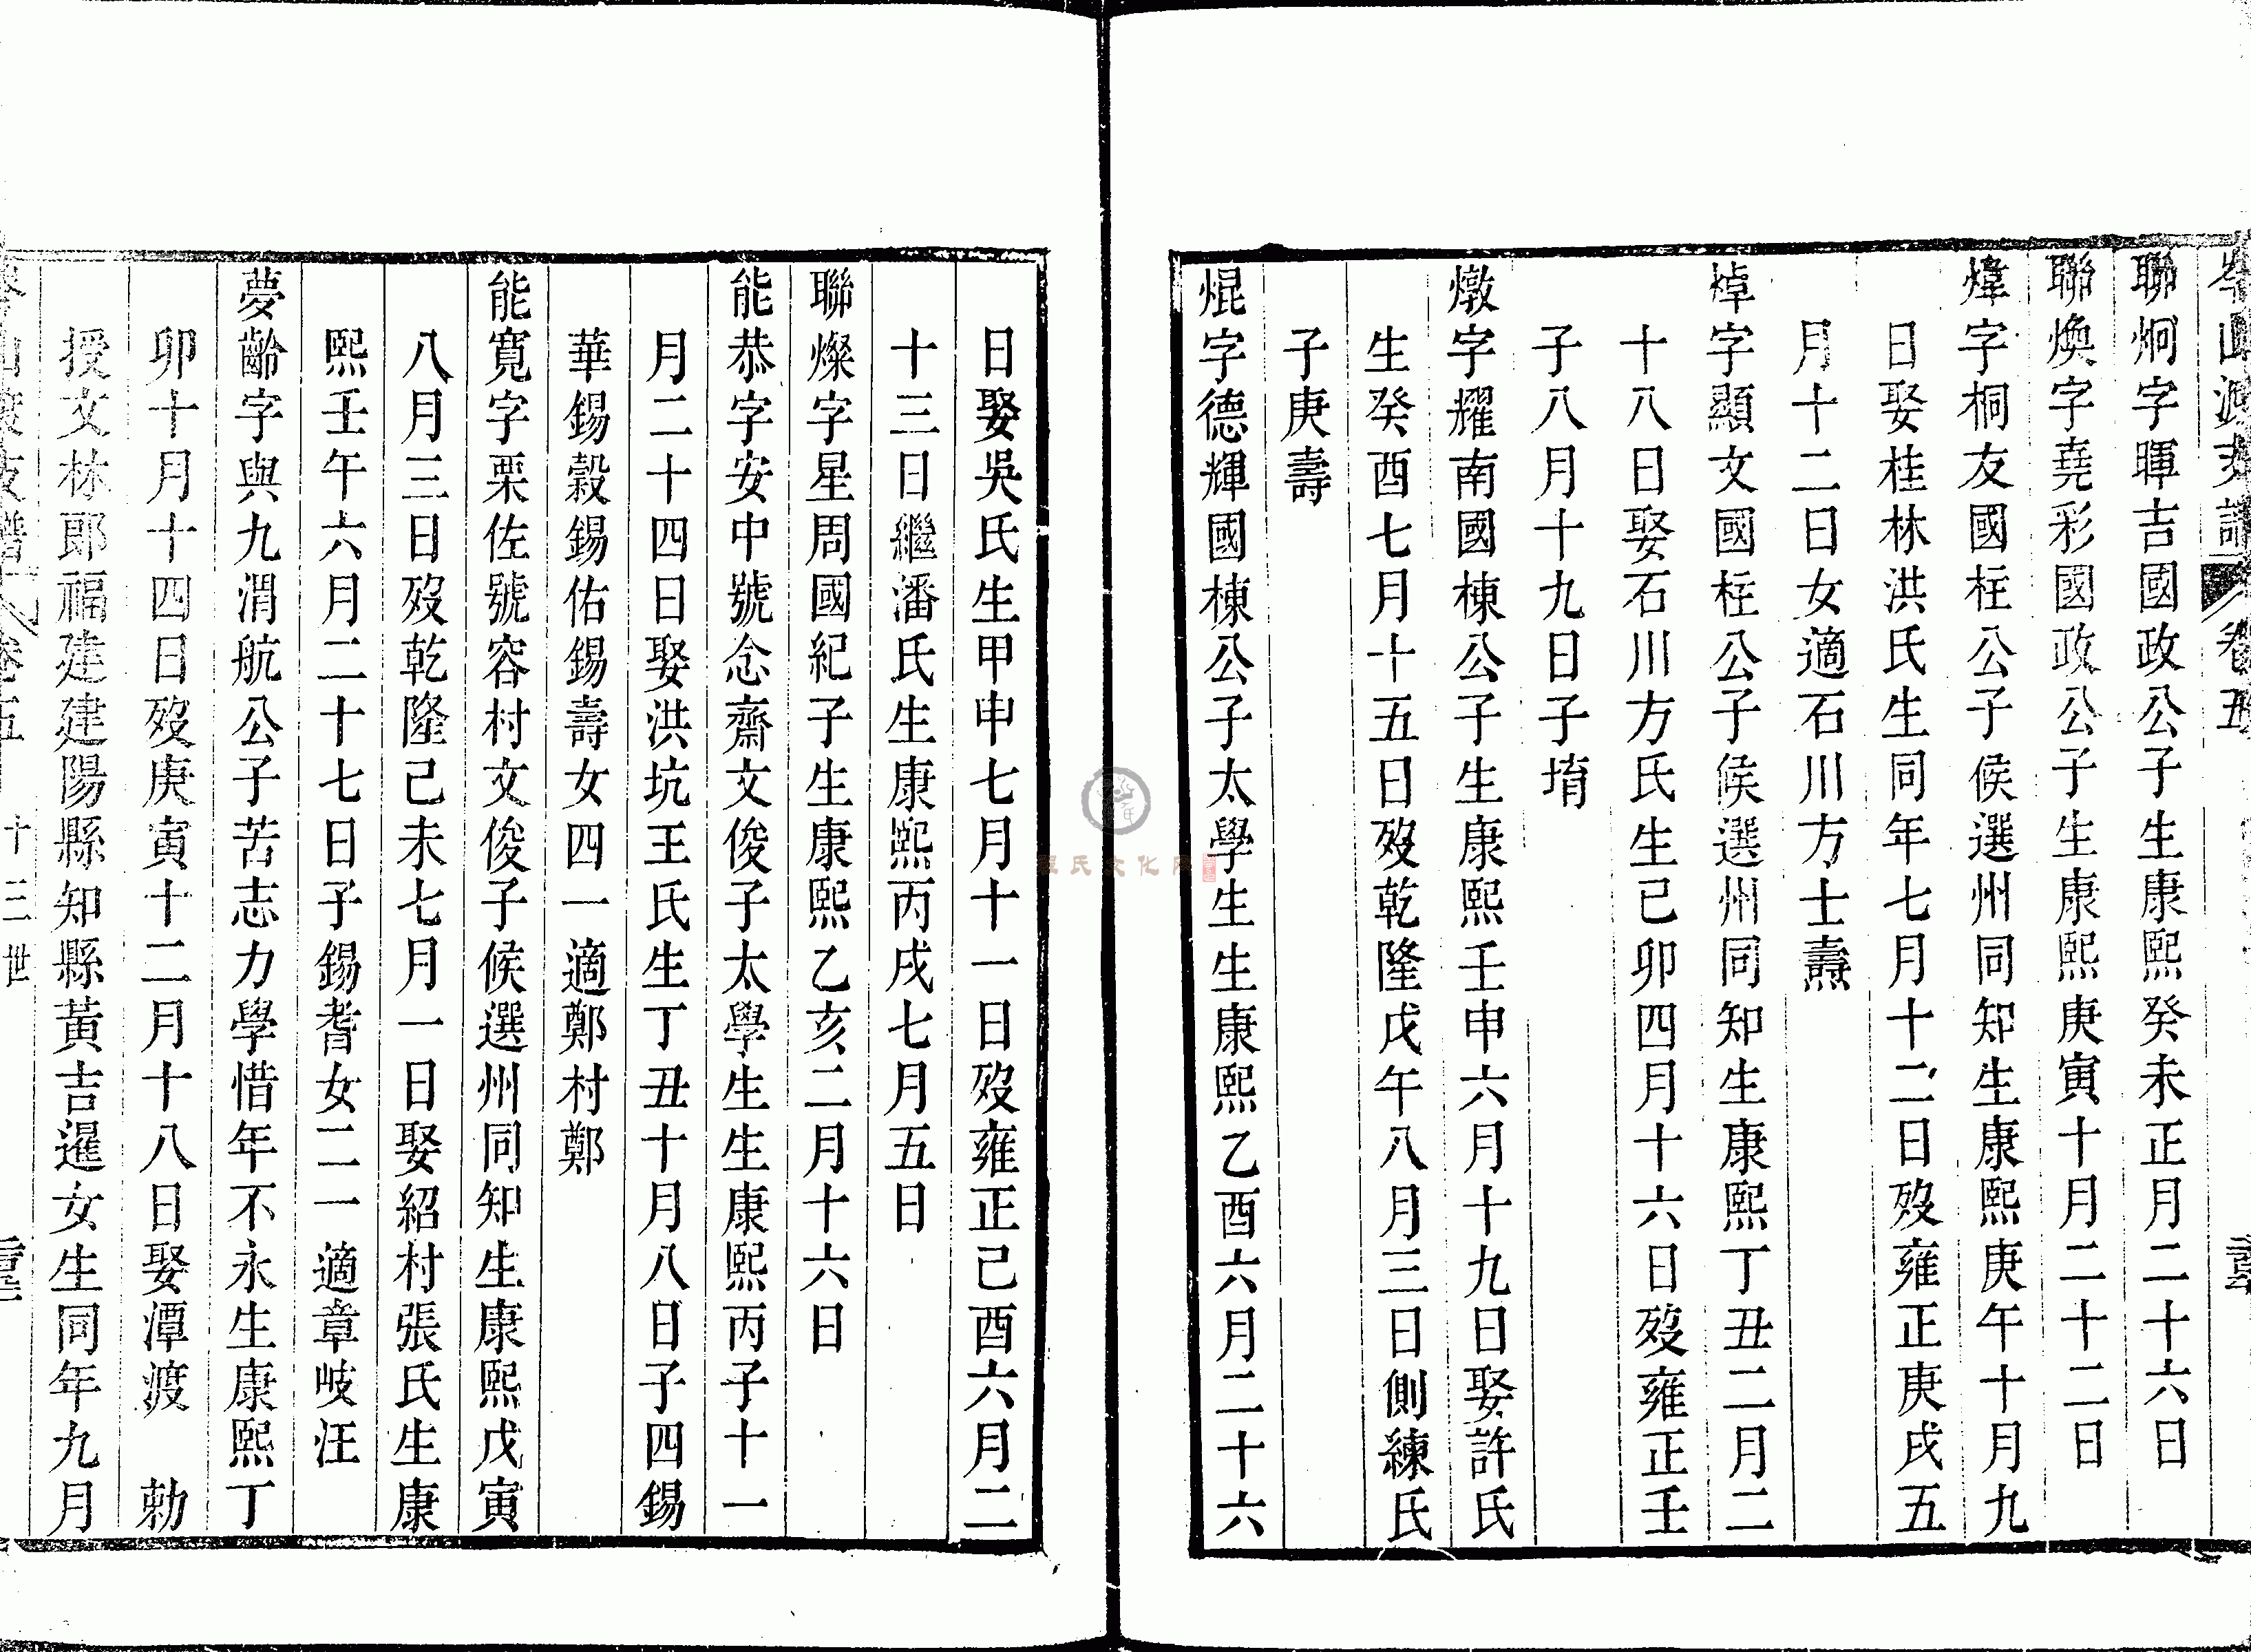 卷五
聯炯字暉吉國政公子生康熙癸未正月二十六日
聯煥字堯彩國政公子生康熙庚寅十月二十二日
煒字桐友國柱公子候選州同知生康熙庚午十月九
日娶桂林洪氏生同年七月十二日歿雍正庚戌五
月十二日女適石川方士壽
焯字顯文國柱公子候選州同知生康熙丁丑二月二
十八日娶石川方氏生已卯四月十六日歿雍正壬
子八月十九日子堉
燉字耀南國棟公子生康熙壬申六月十九日娶許氏
生癸酉七月十五日歿乾隆戊午八月三日側練氏
子庚壽
焜字德輝國棟公子太學生生康熙乙酉六月二十六
日娶吳氏生甲申七月十一日歿雍正己酉六月二
十三日繼潘氏生康熙丙戌七月五日
聯燦字星周國紀子生康熙乙亥二月十六日
能恭字安中號念齋文俊子太學生生康熙丙子十一
月二十四日娶洪坑王氏生丁丑十月八日子四錫
華錫穀錫佑錫壽女四一適鄭村鄭
能寬字栗佐號容村文俊子候選州同知生康熙戊寅
八月三日歿乾隆己未七月一日娶紹村張氏生康
熙壬午六月二十七日子錫耆女二一適章岐汪
夢齡字與九渭航公子苦志力學惜年不永生康熙丁
卯十月十四日歿庚寅十二月十八日娶潭渡　勅
授文林郎福建建陽縣知縣黃吉暹女生同年九月
卷五　十三世